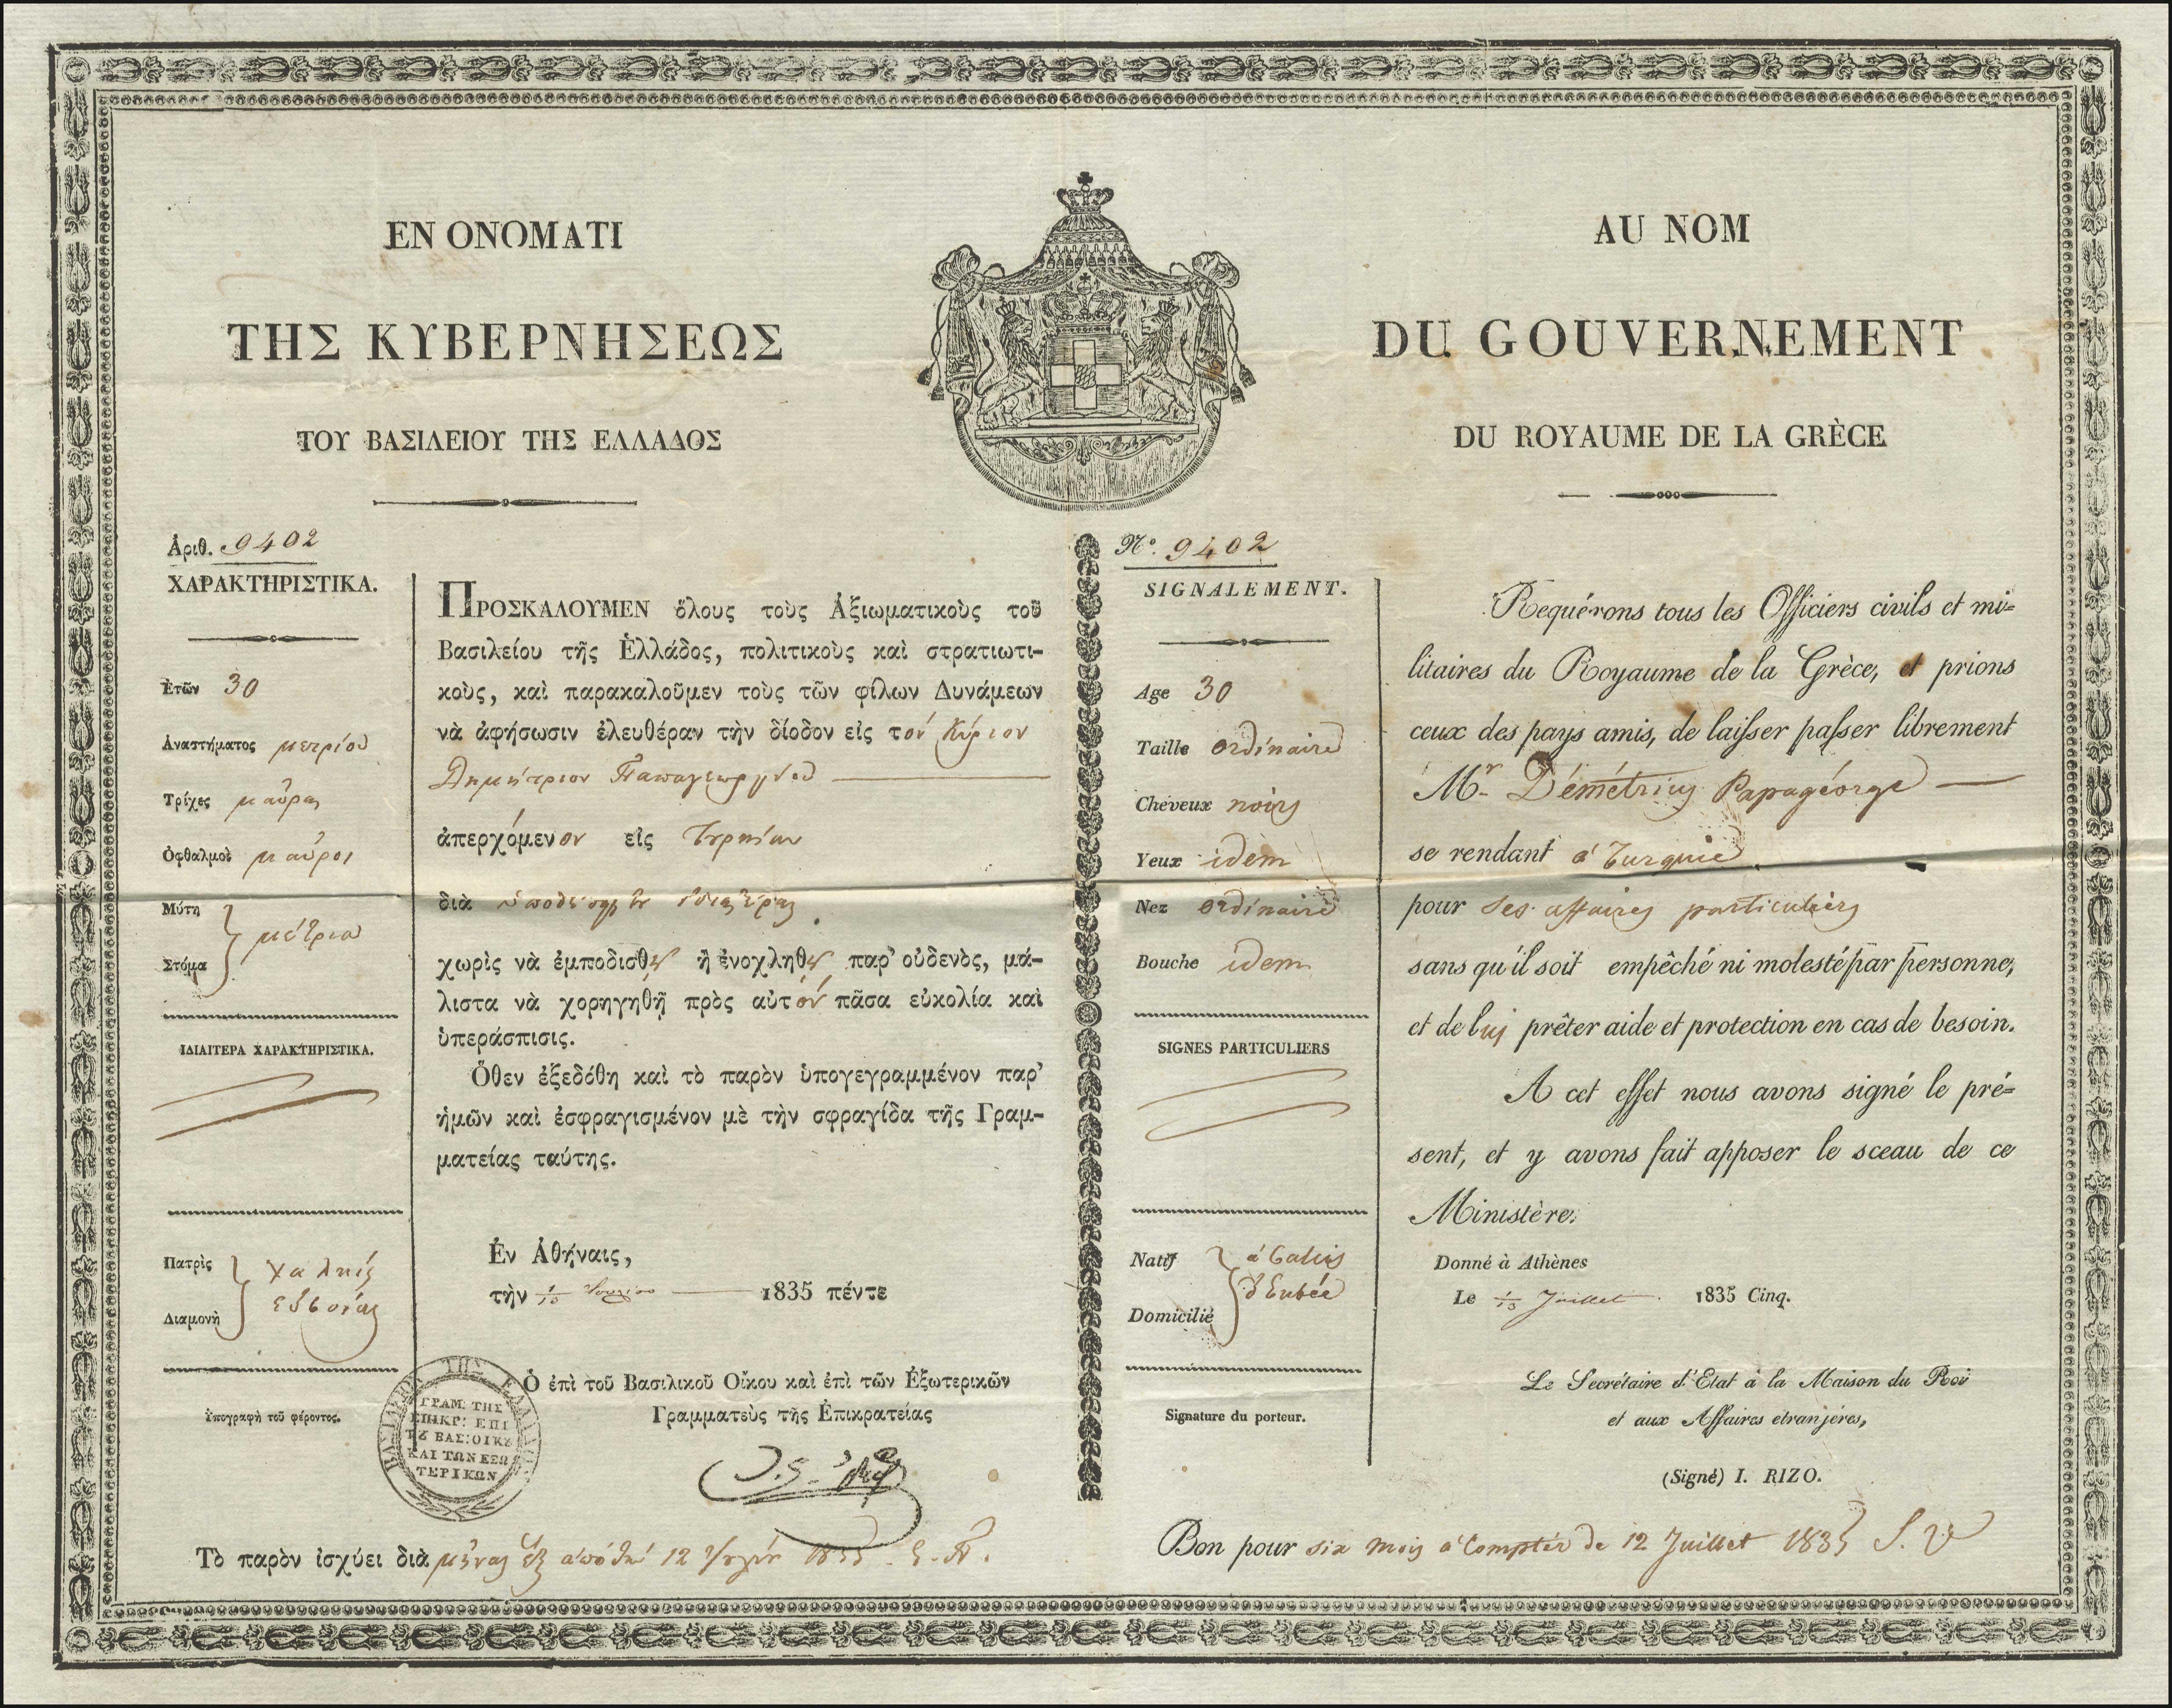 ΕΝ ΟΝΟΜΑΤΙ
ΤΗΣ ΚΥΒΕΡΝΗΣΕΩΣ
ΤΟΥ ΒΑΣΙΛΕΙΟΥ ΤΗΣ ΕΛΛΑΔΟΣ
Ἀριθ. 9402
ΧΑΡΑΚΤΗΡΙΣΤΙΚΑ.
Ἐτῶν 30
Ἀναστήματος μετρίου
Τρίχες μαῦραι
Ὀφθαλμοὶ μαῦροι
Μύτη
μέτρια
Στόμα
ΙΔΙΑΙΤΕΡΑ ΧΑΡΑΚΤΗΡΙΣΤΙΚΑ.
Πατρὶς
Χαλκίς
Εὐβοίας
Διαμονὴ
Ὑπογραφὴ τοῦ φέροντος.
ΠΡΟΣΚΑΛΟΥΜΕΝ ὅλους τοὺς Ἀξιωματικοὺς τοῦ
Βασιλείου τῆς Ἑλλάδος, πολιτικοὺς καὶ στρατιωτι-
κοὺς, καὶ παρακαλοῦμεν τοὺς τῶν φίλων Δυνάμεων
νὰ ἀφήσωσιν ἐλευθέραν τὴν δίοδον εἰς τόν Κύριον
Δημήτριον Παπαγεωργίου
ἀπερχόμενον εἰς Τουρκίαν
διὰ ὑποθέσεις του ἰδιαιτέρας
χωρὶς νὰ ἐμποδισθῇ ἢ ἐνοχληθῇ παρ' οὐδενὸς, μά-
λιστα νὰ χορηγηθῇ πρὸς αὐτόν πᾶσα εὐκολία καὶ
ὑπεράσπισις.
Ὅθεν ἐξεδόθη καὶ τὸ παρὸν ὑπογεγραμμένον παρ'
ἡμῶν καὶ ἐσφραγισμένον μὲ τὴν σφραγίδα τῆς Γραμ-
ματείας ταύτης.
Ἐν Ἀθήναις,
τὴν Ἰουλίου 1835 πέντε
Ὁ ἐπὶ τοῦ Βασιλικοῦ Οἴκου καὶ ἐπὶ τῶν Ἐξωτερικῶν
Γραμματεὺς τῆς Ἐπικρατείας
ΒΑΣΙΛΕΙΟΝ ΤΗΣ ΕΛΛΑΔΟΣ
ΓΡΑΜ. ΤΗΣ
ΕΠΙΚΡ: ΕΠΙ
ΤȢ ΒΑΣ: ΟΙΚȢ
ΚΑΙ ΤΩΝ ΕΞΩ
ΤΕΡΙΚΩΝ
Τὸ παρὸν ἰσχύει διὰ μῆνας ἕξ ἀπό τήν 12 Ἰουλίου 1835
AU NOM
DU GOUVERNEMENT
DU ROYAUME DE LA GRÈCE
Nº. 9402
SIGNALEMENT.
Age 30
Taille ordinaire
Cheveux noirs
Yeux idem
Nez ordinaire
Bouche idem
SIGNES PARTICULIERS
Natif
à Calcis
d'Eubée
Domicilié
Signature du porteur.
Requérons tous les Officiers civils et mi-
litaires du Royaume de la Grèce, et prions
ceux des pays amis, de laisser passer librement
Mr. Démétrius Papagéorge
se rendant à Turquie
pour ses affaires particuliers
sans qu'il soit empêché ni molesté par personne,
et de lui prêter aide et protection en cas de besoin.
A cet effet nous avons signé le pré-
sent, et y avons fait apposer le sceau de ce
Ministère.
Donné à Athènes
Le Juillet 1835 Cinq.
Le Secrétaire d'Etat à la Maison du Roi
et aux Affaires étranjéres,
(Signé) I. RIZO.
Bon pour six mois à compter de 12 Juillet 1835